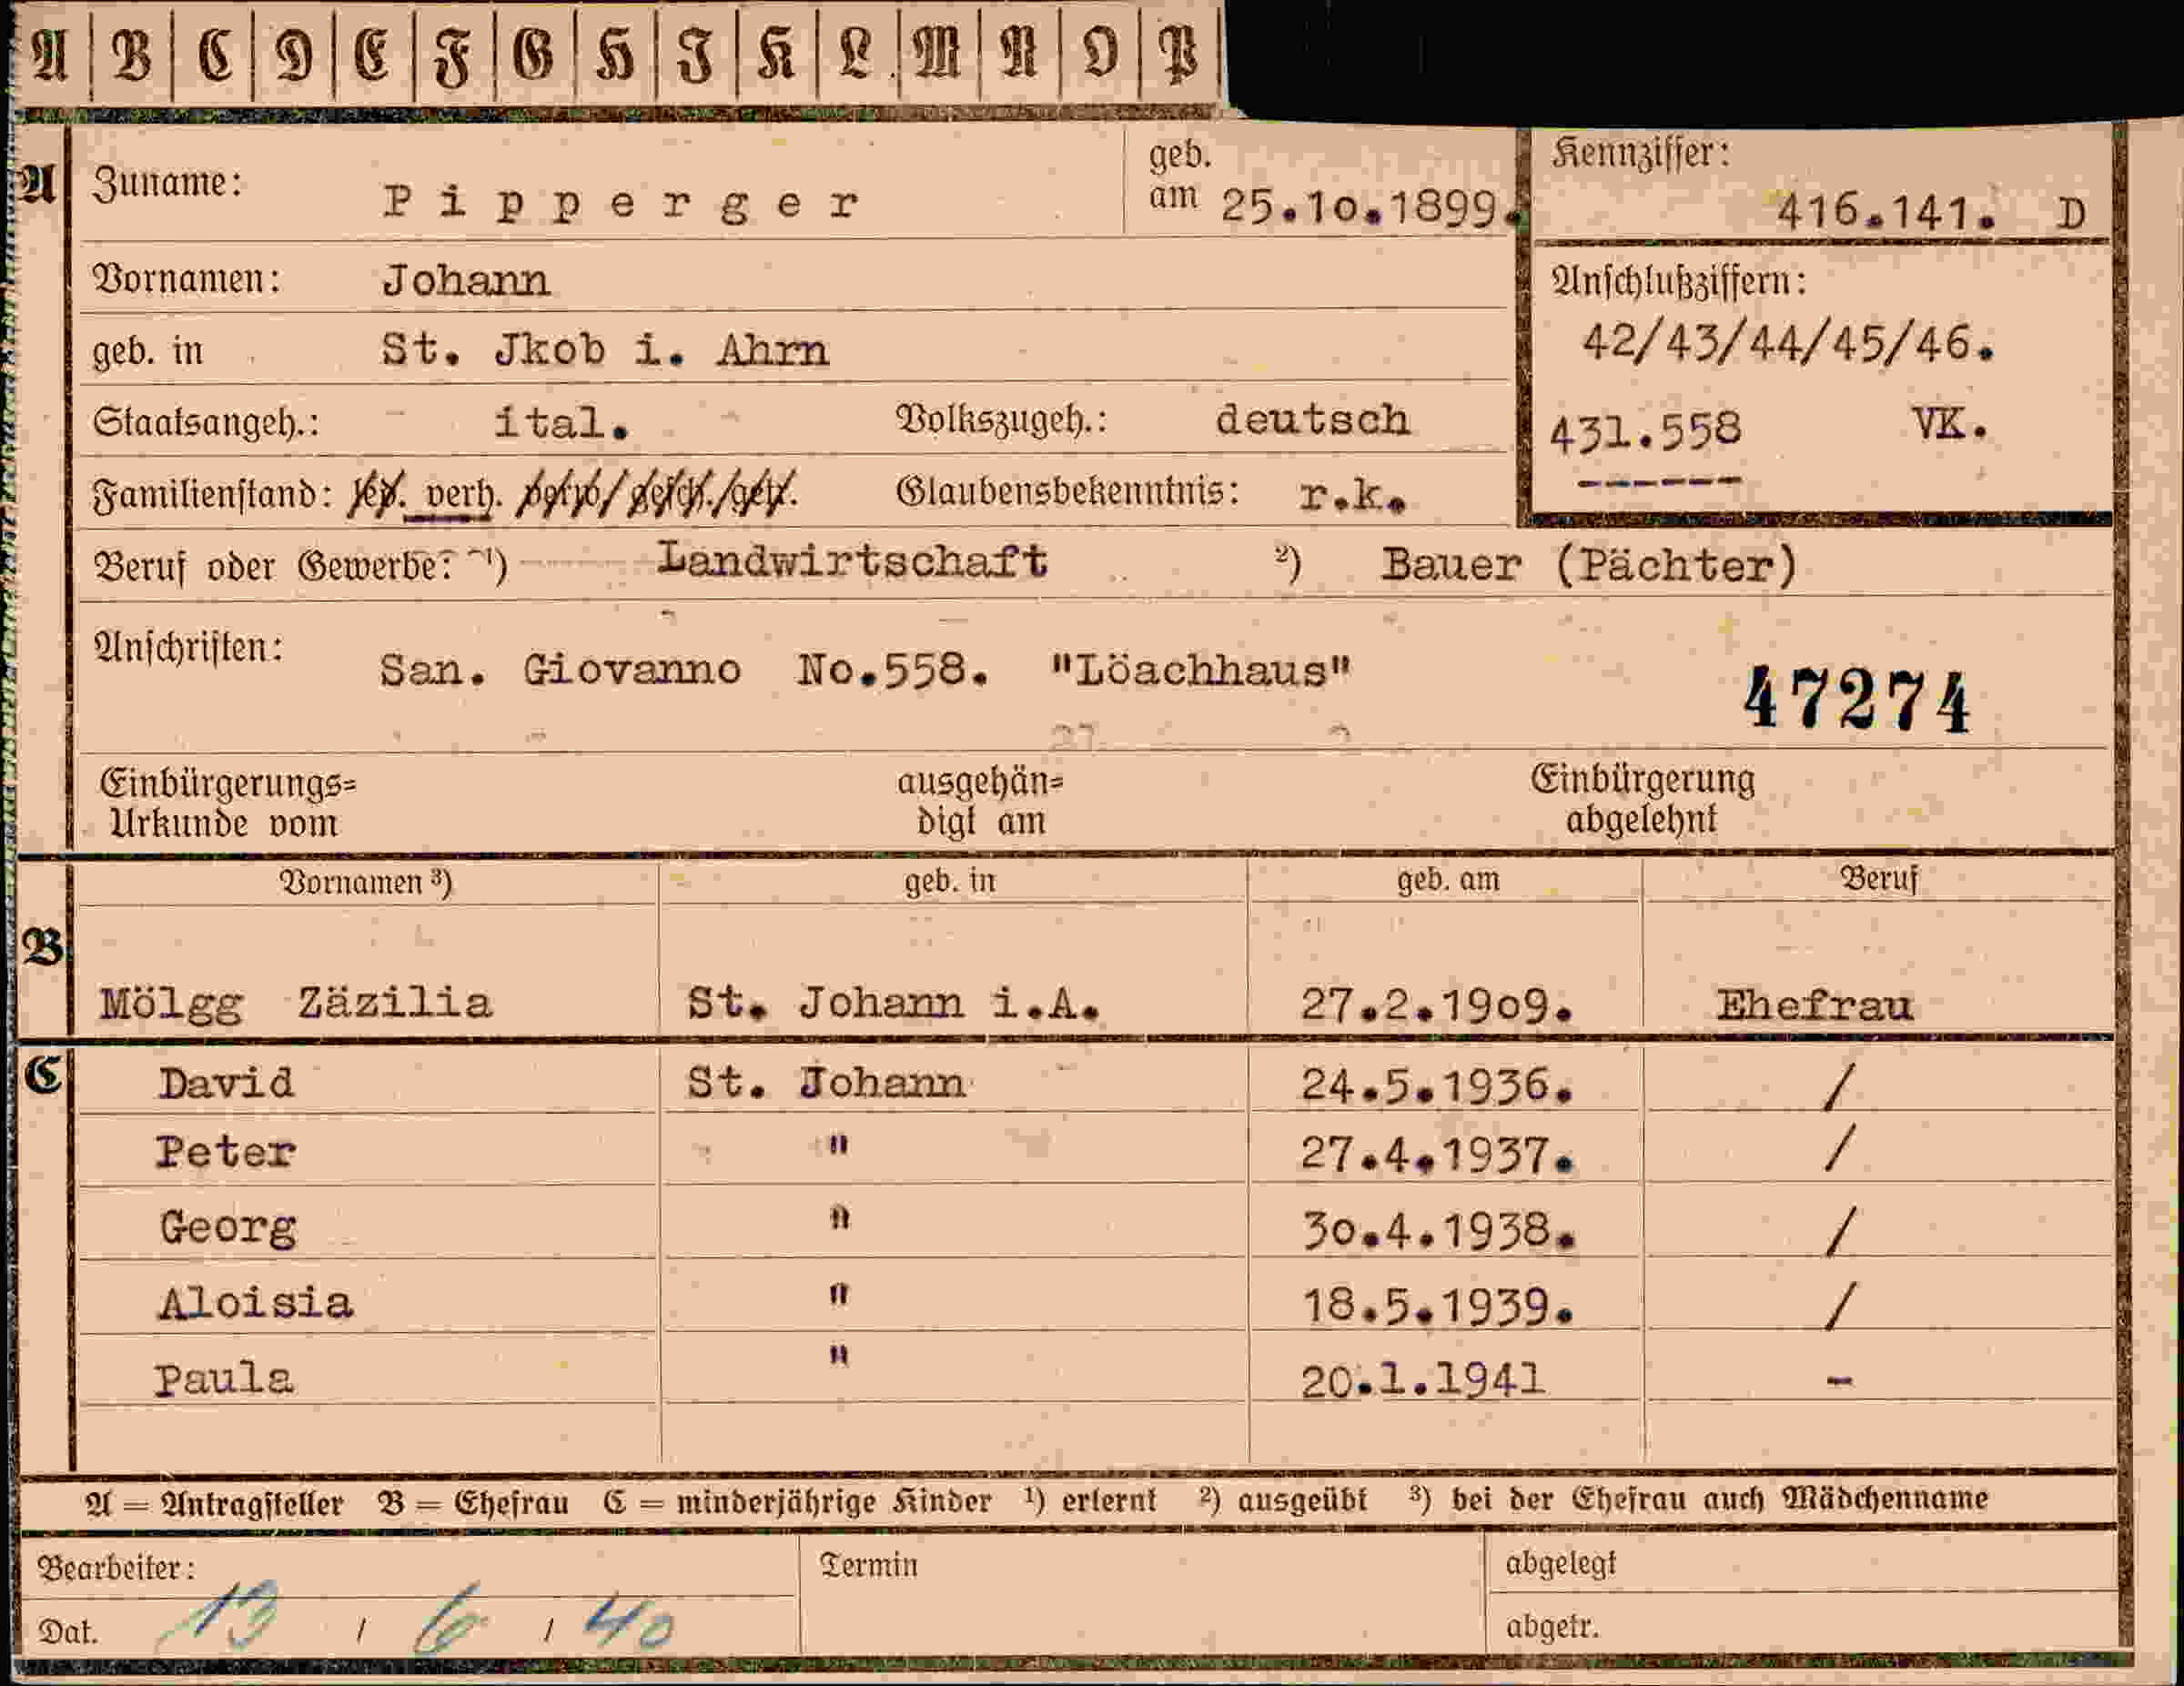 A B C D E F G H I K L M N O P
A Zuname: Pipperger geb. am 25.10.1899. Kennziffer: 416.141. D
Vornamen: Johann Anschlußziffern:
42/43/44/45/46.
geb. in St. Jkob i. Ahrn
Staatsangeh.: ital. Volkszugeh.: deutsch 431.558 VK.
Familienstand: led. verh. verw/ gesch./get. Glaubensbekenntnis: r.k. ------
Beruf oder Gewerbe: ¹) Landwirtschaft ²) Bauer (Pächter)
Anschriften: San. Giovanno No.558. "Löachhaus" 47274
Einbürgerungs= ausgehän= Einbürgerung
Urkunde vom digt am abgelehnt
Vornamen ³) geb. in geb. am Beruf
B
Mölgg Zäzilia St. Johann i.A. 27.2.1909. Ehefrau
C David St. Johann 24.5.1936. /
Peter " 27.4.1937. /
Georg " 30.4.1938. /
Aloisia " 18.5.1939. /
Paula " 20.1.1941 -
A = Antragsteller B = Ehefrau C = minderjährige Kinder ¹) erlernt ²) ausgeübt ³) bei der Ehefrau auch Mädchenname
Bearbeiter: Termin abgelegt
Dat. 13 / 6 / 40 abgetr.